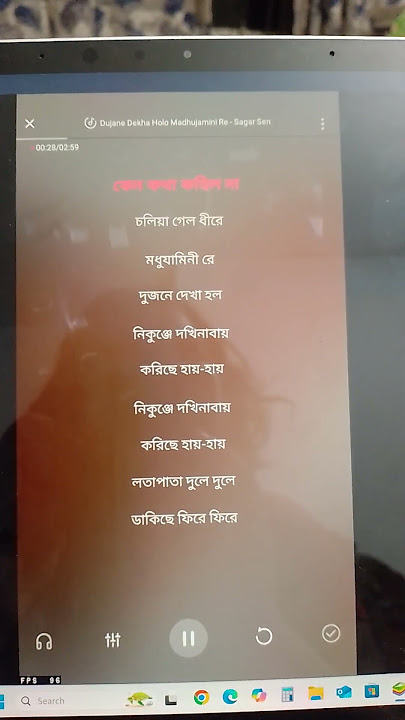 Dujane Dekha Holo Madhujamini Re - Sagar Sen
00:28/02:59
কেন কথা কহিল না
চলিয়া গেল ধীরে
মধুযামিনী রে
দুজনে দেখা হল
নিকুঞ্জে দখিনাবায়
করিছে হায়-হায়
নিকুঞ্জে দখিনাবায়
করিছে হায়-হায়
লতাপাতা দুলে দুলে
ডাকিছে ফিরে ফিরে
FPS 96
Search